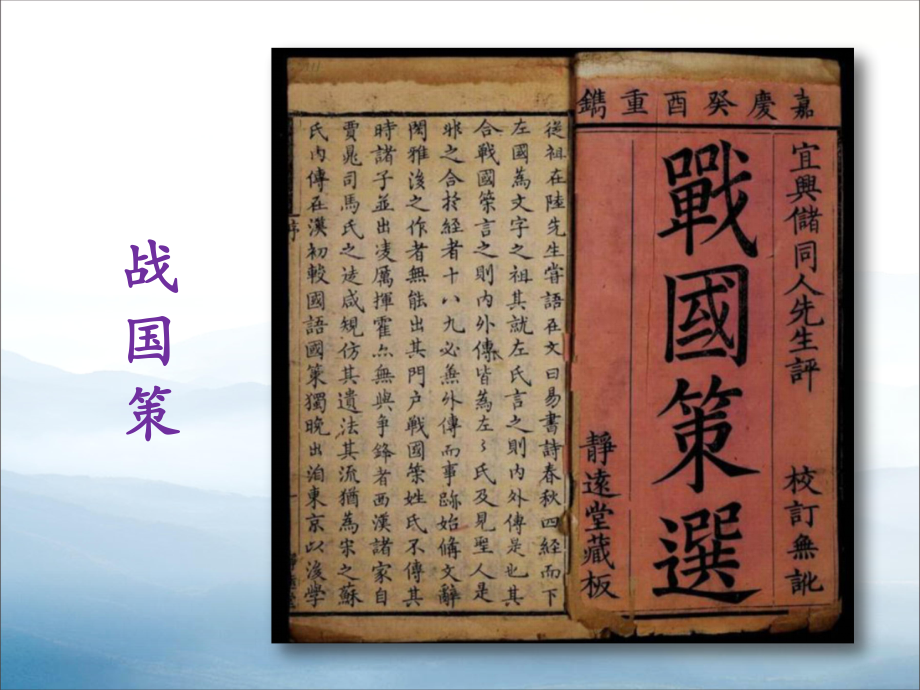 战国策
嘉慶癸酉重鐫
宜興儲同人先生評 校訂無訛
戰國策選
靜遠堂藏板
從祖在陸先生嘗語在文曰易書詩春秋四經而下
左國為文字之祖其就左氏言之則内外傳是也其
合戰國策言之則内外傳皆為左〻氏及見聖人是
非之合於經者十八九必無外傳而事跡始備文辭
閎雅後之作者無能出其門户戰國策姓氏不傳其
時諸子並出凌厲揮霍亦無與争鋒者西漢諸家自
賈晁司馬氏之徒咸規仿其遺法其流猶為宋之蘇
氏内傳在漢初較國語國策獨晚出洎東京以後學
序